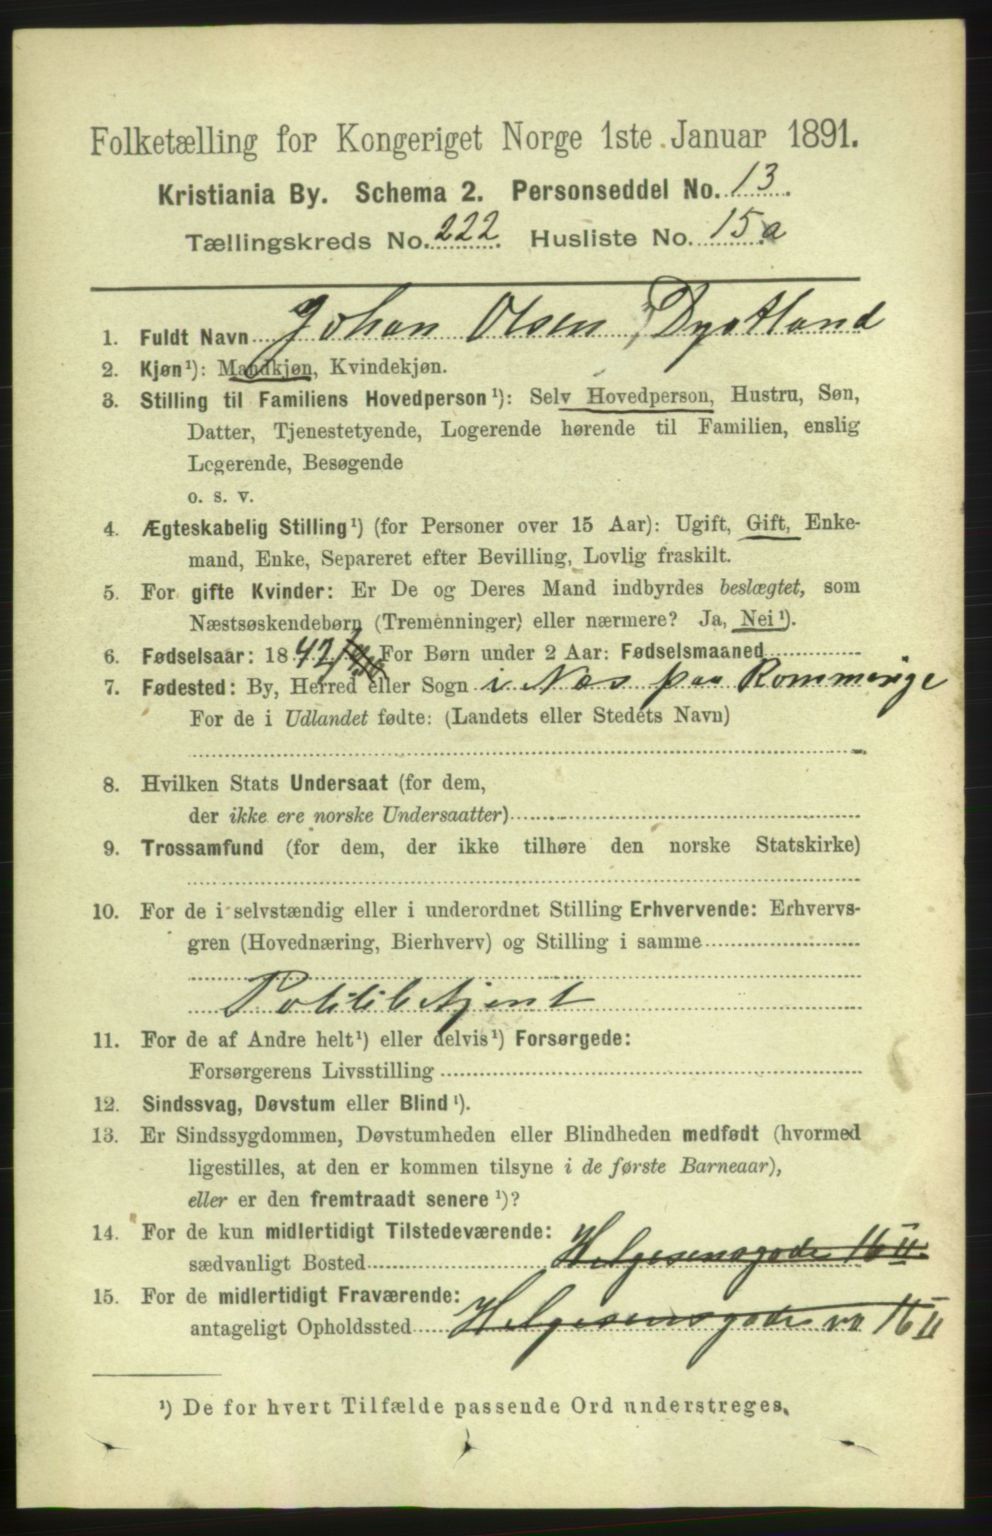 Folketælling for Kongeriget Norge 1ste Januar 1891.
Kristiania By. Schema 2. Personseddel No. 13.
Tællingskreds No. 222. Husliste No. 15a
1. Fuldt Navn Johan Olsen, Dystland
2. Kjøn¹): Mandkjøn, Kvindekjøn.
3. Stilling til Familiens Hovedperson¹): Selv Hovedperson, Hustru, Søn,
Datter, Tjenestetyende, Logerende hørende til Familien, enslig
Logerende, Besøgende
o. s. v.
4. Ægteskabelig Stilling¹) (for Personer over 15 Aar): Ugift, Gift, Enke-
mand, Enke, Separeret efter Bevilling, Lovlig fraskilt.
5. For gifte Kvinder: Er De og Deres Mand indbyrdes beslægtet, som
Næstsøskendebørn (Tremenninger) eller nærmere? Ja, Nei¹).
6. Fødselsaar: 1842 For Børn under 2 Aar: Fødselsmaaned
7. Fødested: By, Herred eller Sogn i Næs paa Rommerige
For de i Udlandet fødte: (Landets eller Stedets Navn)
8. Hvilken Stats Undersaat (for dem,
der ikke ere norske Undersaatter)
9. Trossamfund (for dem, der ikke tilhøre den norske Statskirke)
10. For de i selvstændig eller i underordnet Stilling Erhvervende: Erhvervs-
gren (Hovednæring, Bierhverv) og Stilling i samme
Politibetjent
11. For de af Andre helt¹) eller delvis¹) Forsørgede:
Forsørgerens Livsstilling
12. Sindssvag, Døvstum eller Blind¹).
13. Er Sindssygdommen, Døvstumheden eller Blindheden medfødt (hvormed
ligestilles, at den er kommen tilsyne i de første Barneaar),
eller er den fremtraadt senere¹)?
14. For de kun midlertidigt Tilstedeværende:
sædvanligt Bosted Helgesensgade 16 II
15. For de midlertidigt Fraværende:
antageligt Opholdssted Helgesensgade no 16 II
¹) De for hvert Tilfælde passende Ord understreges.